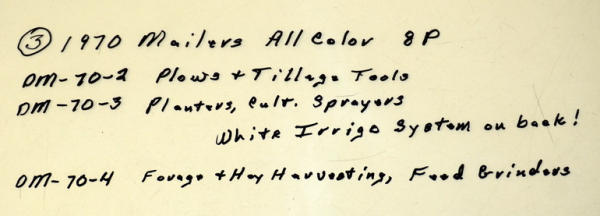 ③ 1970 Mailers All Color 8P
DM-70-2 Plows + Tillage Tools
DM-70-3 Planters, Cult. Sprayers
White Irrigo System on back!
DM-70-4 Forage + Hay Harvesting, Feed Grinders